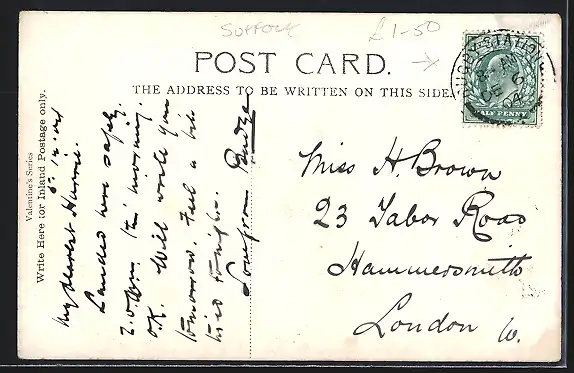 SUFFOLK
£1-50
POST CARD.
THE ADDRESS TO BE WRITTEN ON THIS SIDE.
Valentine's Series
Write Here for Inland Postage only.
6.12.04
My dearest Harrie.
Landed here safely.
2.0 a.m. this morning.
O.K. Will write you
tomorrow. Feel a bit
tired tonight.
Love from
Miss H. Brown
23 Tabor Road
Hammersmith
London W.
RUGBY STATION
DE 6
04
HALF PENNY